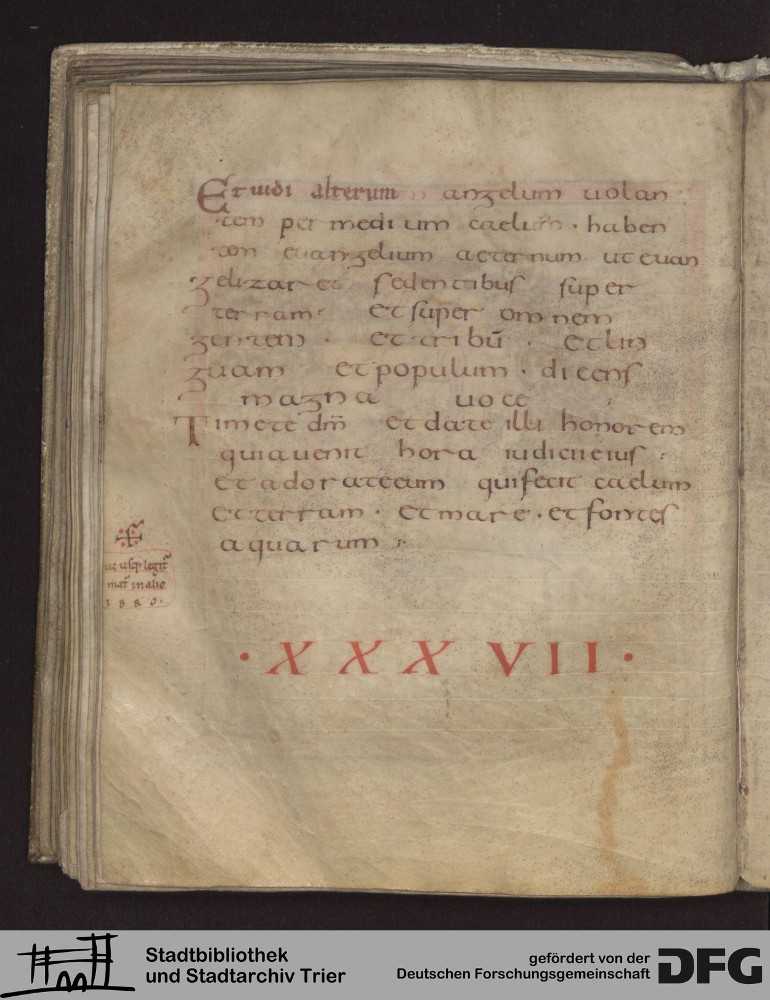 Et uidi alterum angelum uolan
tem per medium caelum · haben
tem euangelium aeternum ut euan
gelizaret sedentibus super
terram · et super omnem
gentem · et tribū · et lin
guam et populum · dicens
magna uoce
Timete dm̄ et date illi honorem
quia uenit hora iudicii eius :
et adorate eum qui fecit caelum
et terram · et mare · et fontes
aquarum :
· XXX VII ·
Stadtbibliothek
und Stadtarchiv Trier
gefördert von der
Deutschen Forschungsgemeinschaft
DFG